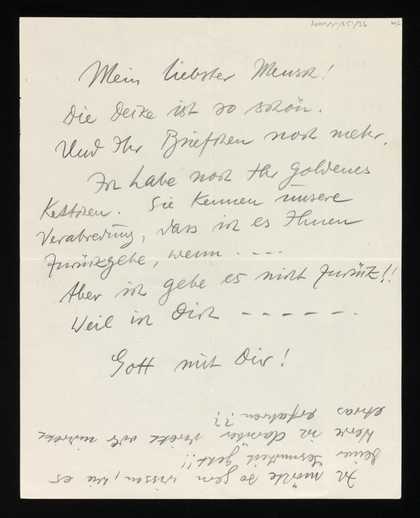 Mein liebster Mensch!
Die Decke ist so schön.
Und Ihr Briefchen noch mehr.
Ich habe noch Ihr goldenes
Kettchen. Sie kennen unsere
Verabredung, dass ich es Ihnen
zurückgebe, wenn . - - .
Aber ich gebe es nicht zurück!!
Weil ich Dich - - - - - - .
Gott mit Dir!
Ich möchte so gern wissen, wie es
Deiner geht!!
Werde ich darüber nicht
etwas erfahren??